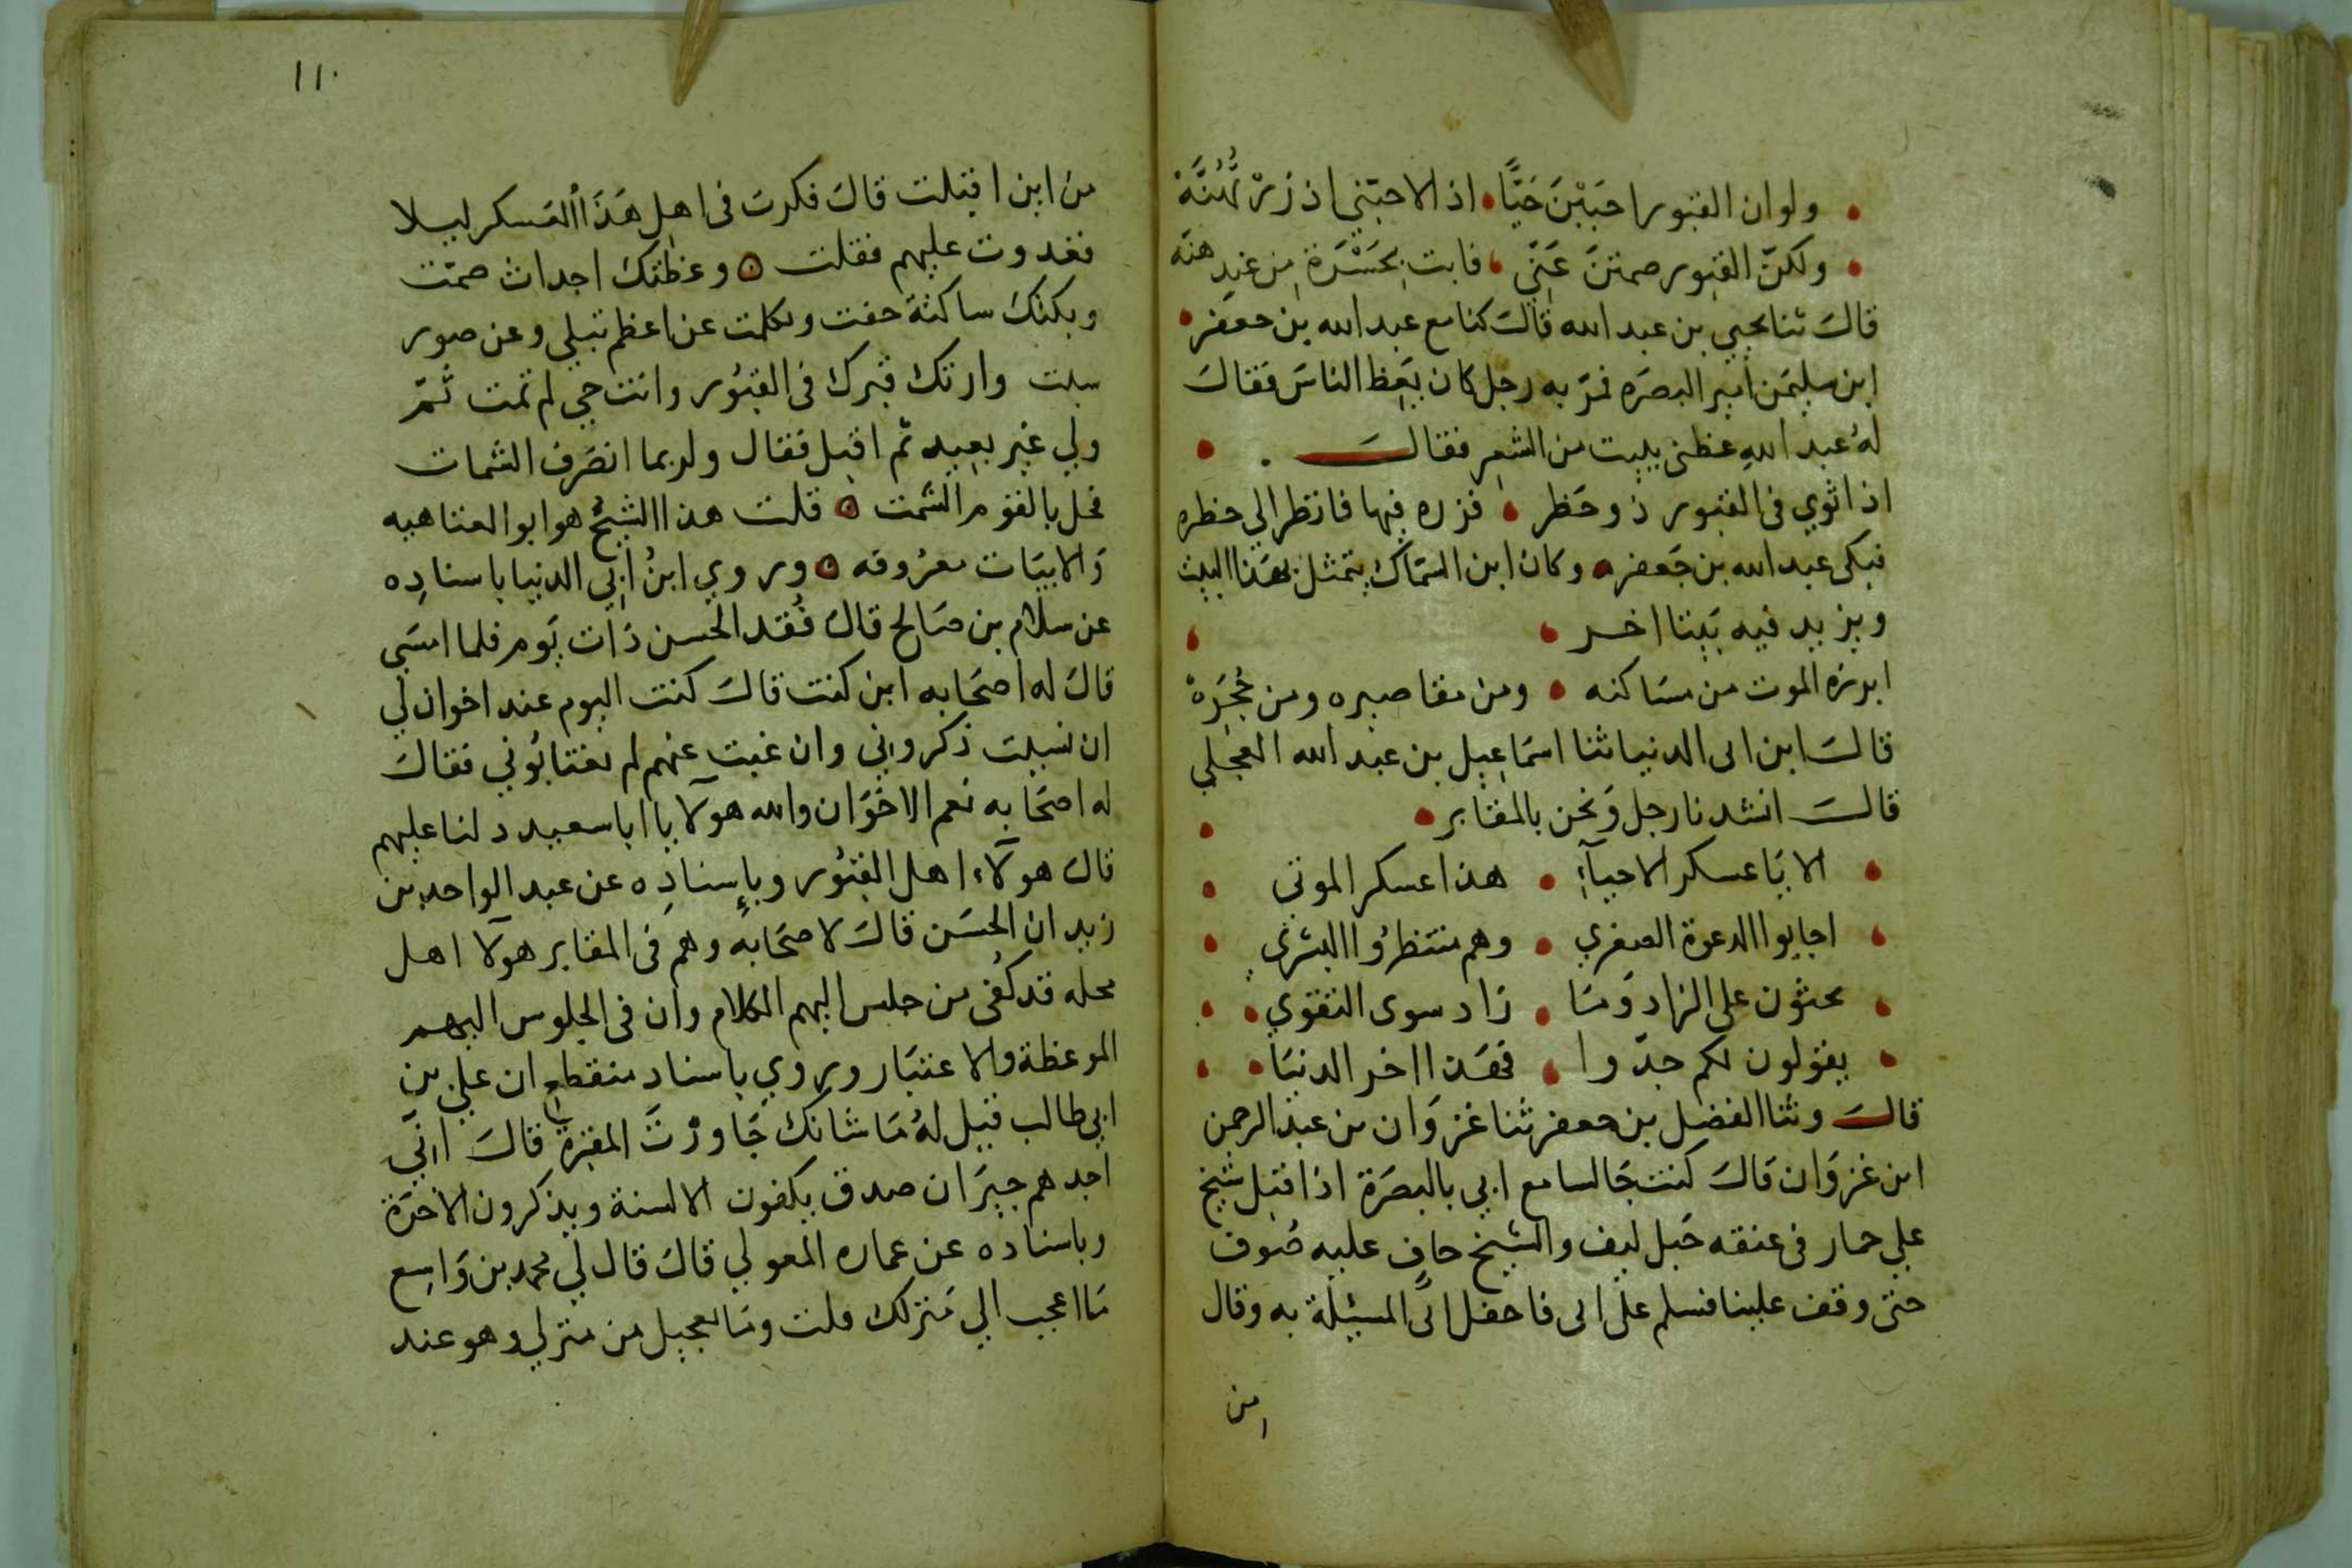 ولوان القبور احببن حَيًّا اذ الاحببنى اذ زرتهُنَّهْ
ولكنّ القبور صمتنَ عَنّى فابت بحَسْرَة من عندهنه
قالَ ثنا يحيى بن عبد الله قالَ كنا مع عبد الله بن جعفر
ابن سليمَن امير البصرَه فمرّ به رجل كان يَعِظ الناسَ فقالَ
لهُ عبد اللهِ عظنى ببيت من الشعِر فقالَ
اذا ثوي فى القبور ذو خطر فزره فيها فانظر الي خطره
فبكى عبد الله بن جَعفر وكان ابن السمّاك يتمثل بهَذا البيت
ويزيد فيه بَيتا اخر
ابرزه الموت من مسَاكنه ومن مقاصيره ومن حُجَرَهْ
قالَ ابن ابى الدنيا ثنا اسمَاعِيل بن عبد الله العجلي
قالَ انشدنا رجل وَنحن بالمقابر
الا يَا عسكر الاحيآءِ هذا عسكر الموتى
اجابوا الدعوة الصغري وهم منتظرُوا البشرى
يحثون على الزاد وَمَا زَاد سوى التقوي
يقولون لكم جدّوا فهَذا اخر الدنيَا
قالَ وثنا الفضل بن جعفر ثنا غزوَان بن عبد الرحمن
ابن غزوَان قالَ كنت جَالسا مع ابي بالبصرَة اذ اقبل شيخ
علي حمار فى عنقه حَبل ليف والشيخ حافٍ عليه صُوف
حتى وقف علينا فسلم على ابى فاحفل ابى المسئلة به وقال
من
١١٠
من اين اقبلت قالَ فكرت فى اهل هَذَا العَسكر ليلا
فغدوت عليهم فقلت وعظتك اجداث صمّت
وبكتك ساكتة خفت وتكلمت عن اعظم تبلي وعن صور
سبت وارتك قبرك فى القبُور وانت حي لم تمت ثمّ
ولي غير بعِيد ثم اقبل فقال ولربما انصَرف الشمات
فحل بالقوم الشمت قلت هذا الشيخُ هو ابو العتاهيه
وَالابيَات معرُوفه وروي ابنُ ابِي الدنيا باسنادِه
عن سلام بن صَالح قالَ فُقد الحسن ذَات يَوم فلما امسَى
قالَ له اصحَابه اين كنت قالَ كنت اليوم عند اخوان لي
ان نسيت ذكروني وان غبت عنهم لم يغتابُوني فقالَ
له اصحَابه نعم الاخوَان والله هولآ يا ابا سعيد دلنا عليهم
قالَ هولآء اهل القبُور وبإسنادِه عن عبد الواحد بن
زيد ان الحسَن قالَ لاصحَابه وهم فى المقابر هولآ اهل
محله قد كُفى من جلس اليهم الكلام وان فى الجلوس اليهم
الموعظة والاعتبَار وروي باسناد منقطع ان علي بن
ابي طالب قيل لهُ مَا شانك جَاورْتَ المقبرة قالَ انّي
اجدهم جيرَان صدق يكفون الالسنة ويذكرون الاخرَة
وباسناده عن عماره المعولي قالَ قال لي محمد بن وَاسِع
مَا اعجب الي مَنزلك قلت ومَا يعجبك من منزلي وهو عند